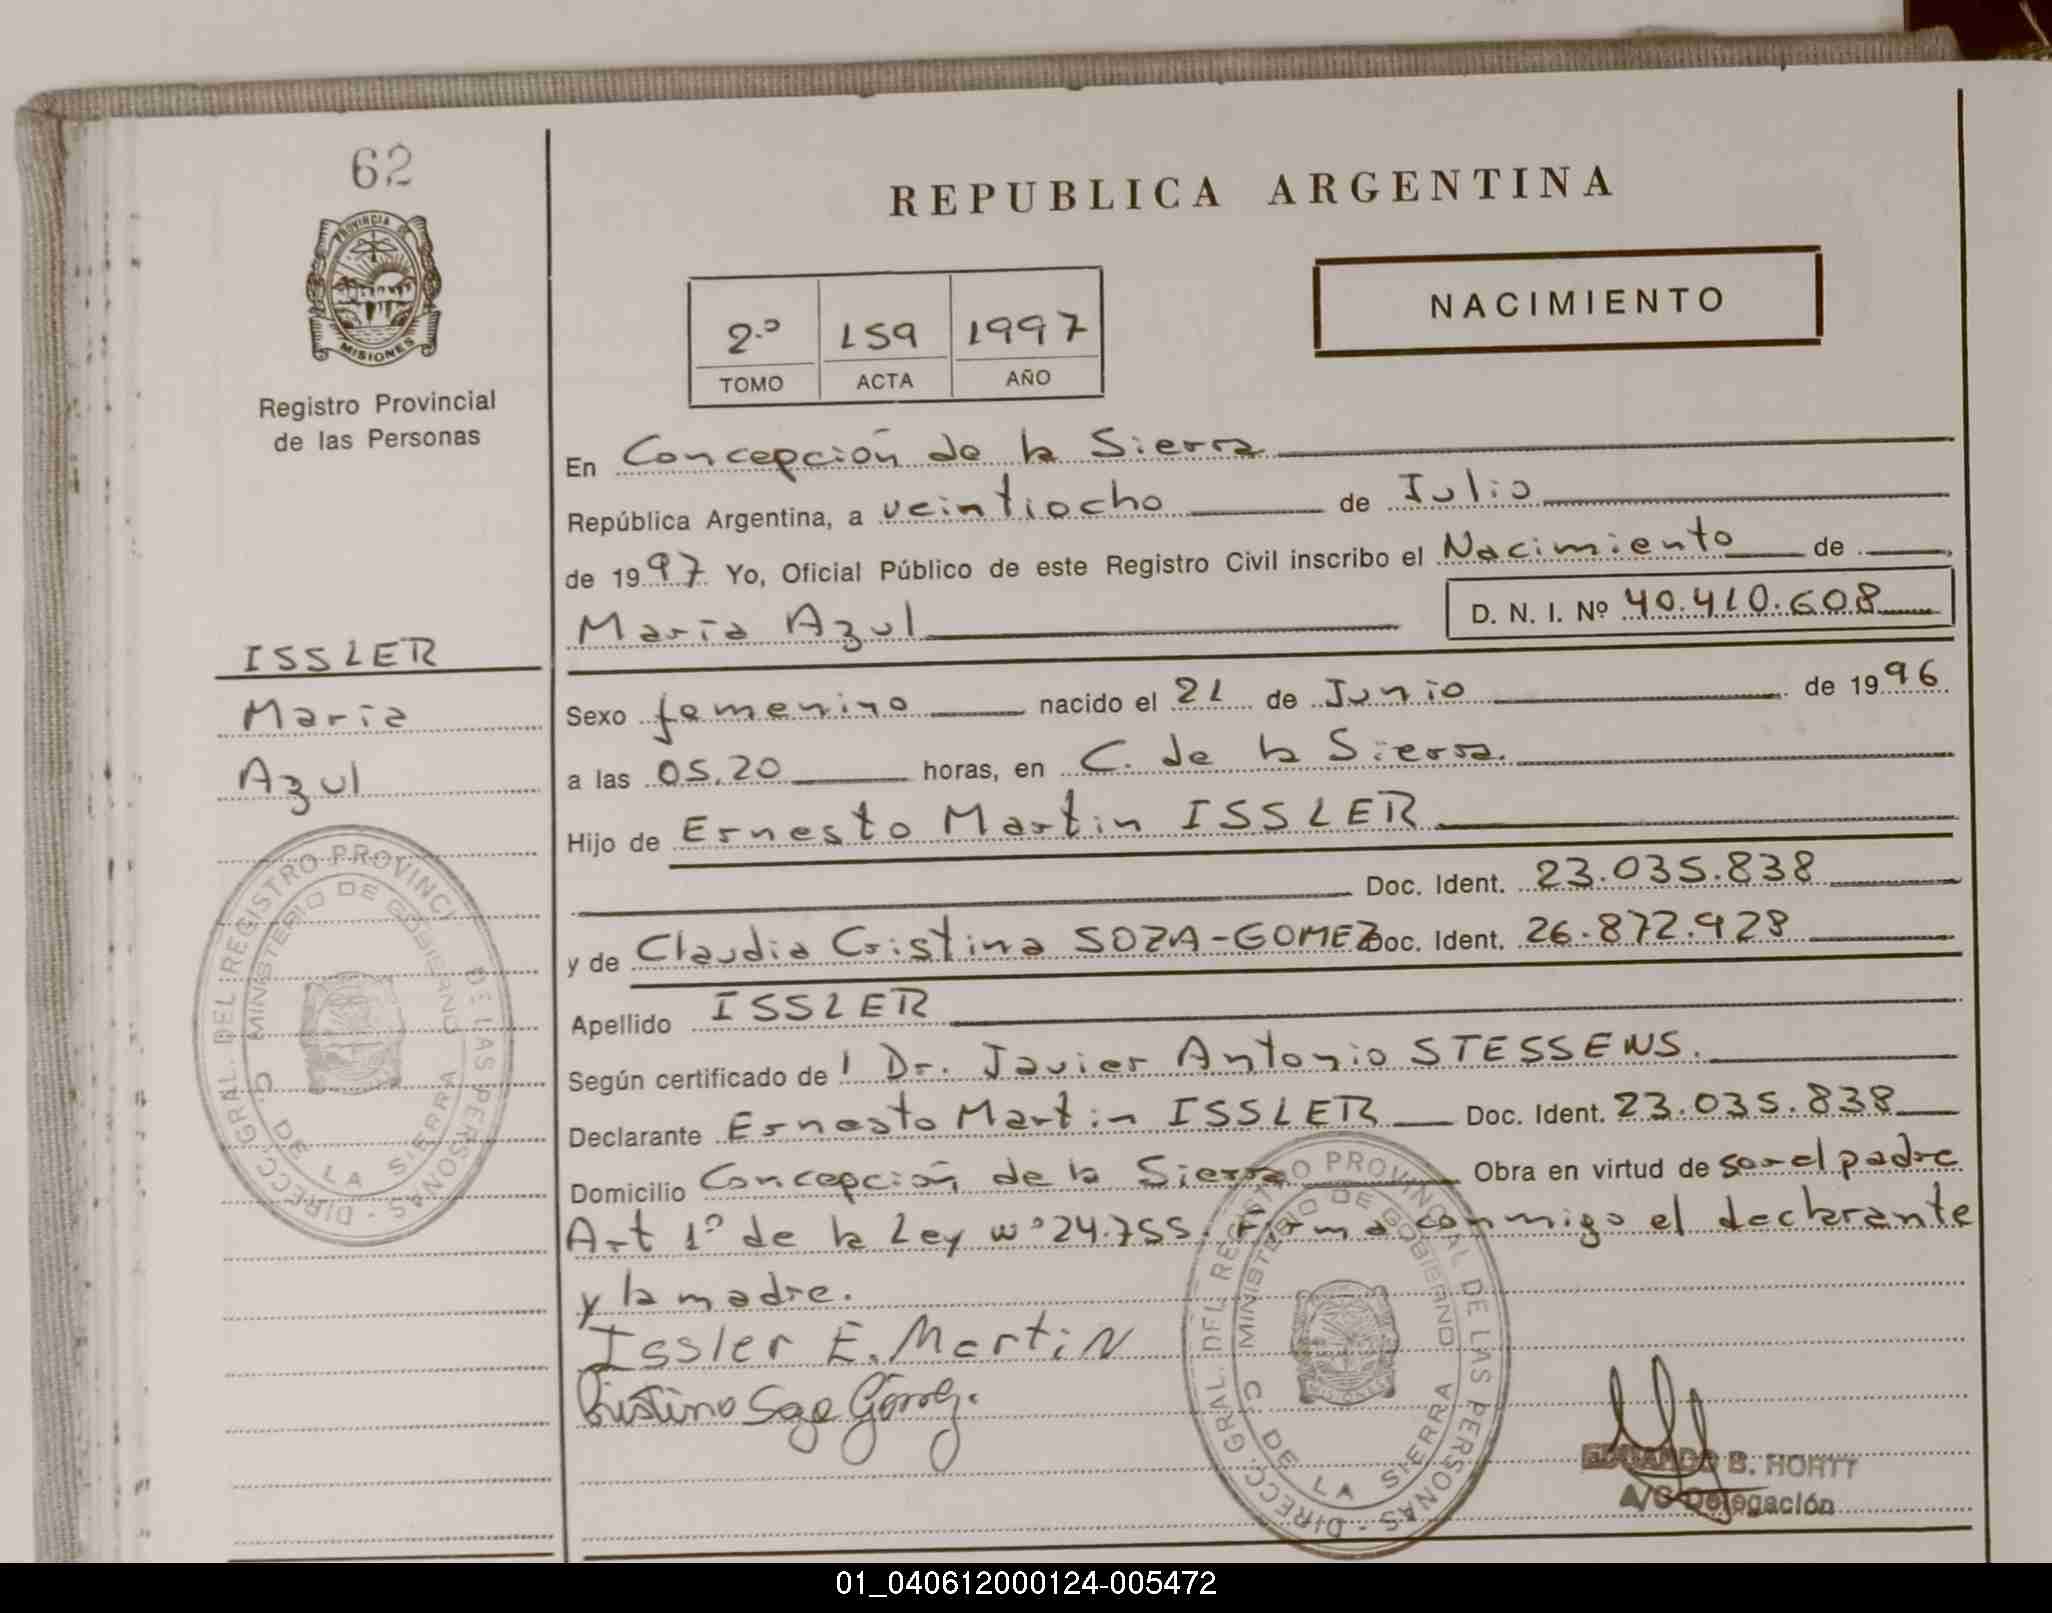 62
PROVINCIA DE
MISIONES
Registro Provincial
de las Personas
ISSLER
Maria
Azul
DIRECC. GRAL. DEL REGISTRO PROVINCIAL DE LAS PERSONAS
MINISTERIO DE GOBIERNO
C. DE LA SIERRA
REPUBLICA ARGENTINA
NACIMIENTO
2.º 159 1997
TOMO ACTA AÑO
En Concepción de la Sierra
República Argentina, a veintiocho de Julio
de 1997 Yo, Oficial Público de este Registro Civil inscribo el Nacimiento de
María Azul D. N. I. Nº 40.410.608
Sexo femenino nacido el 21 de Junio de 1996
a las 05.20 horas, en C. de la Sierra.
Hijo de Ernesto Martin ISSLER
Doc. Ident. 23.035.838
y de Claudia Cristina SOZA-GOMEZ Doc. Ident. 26.872.928
Apellido ISSLER
Según certificado de l Dr. Javier Antonio STESSENS.
Declarante Ernesto Martin ISSLER Doc. Ident. 23.035.838
Domicilio Concepción de la Sierra Obra en virtud de ser el padre
Art 1º de la Ley Nº 24.755. Firma conmigo el declarante
y la madre.
Issler E. Martin
Cristina Soza Gómez.
DIRECC. GRAL. DEL REGISTRO PROVINCIAL DE LAS PERSONAS
MINISTERIO DE GOBIERNO
MISIONES
C. DE LA SIERRA
B.
A/C Delegación
01_040612000124-005472